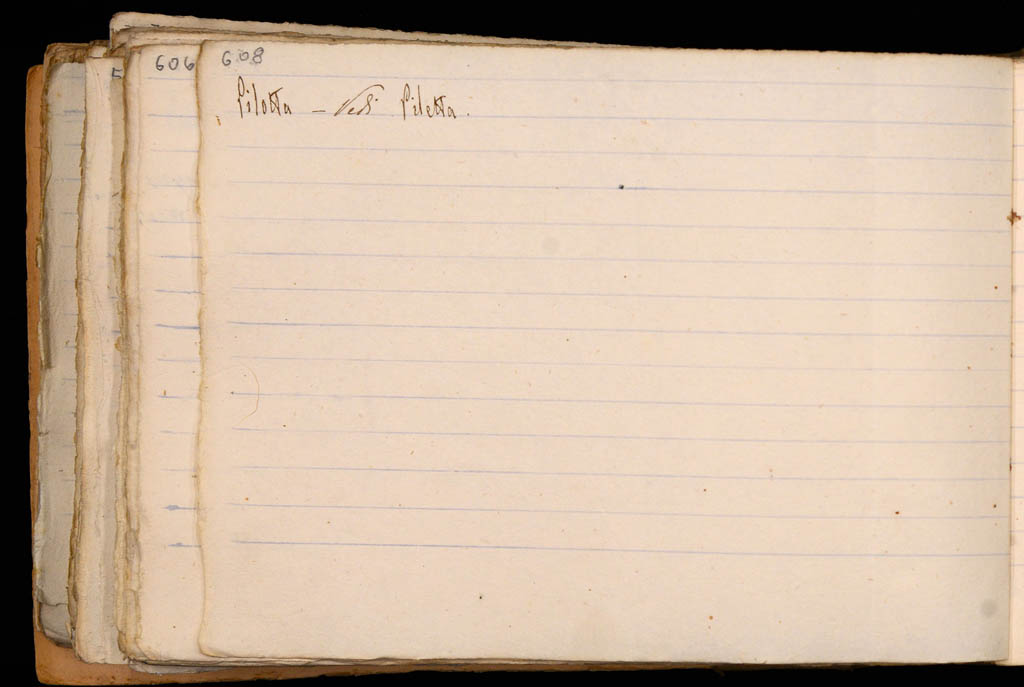 606
608
Pilotta – Vedi Piletta.